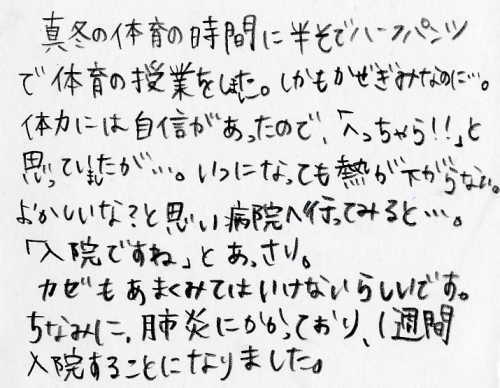 真冬の体育の時間に半そでハーフパンツ
で体育の授業をしました。しかもかぜぎみなのに…。
体力には自信があったので、「へっちゃら!!」と
思っていましたが…。いつになっても熱が下がらない。
おかしいな?と思い病院へ行ってみると…。
「入院ですね」とあっさり。
カゼもあまくみてはいけないらしいです。
ちなみに、肺炎にかかっており、1週間
入院することになりました。